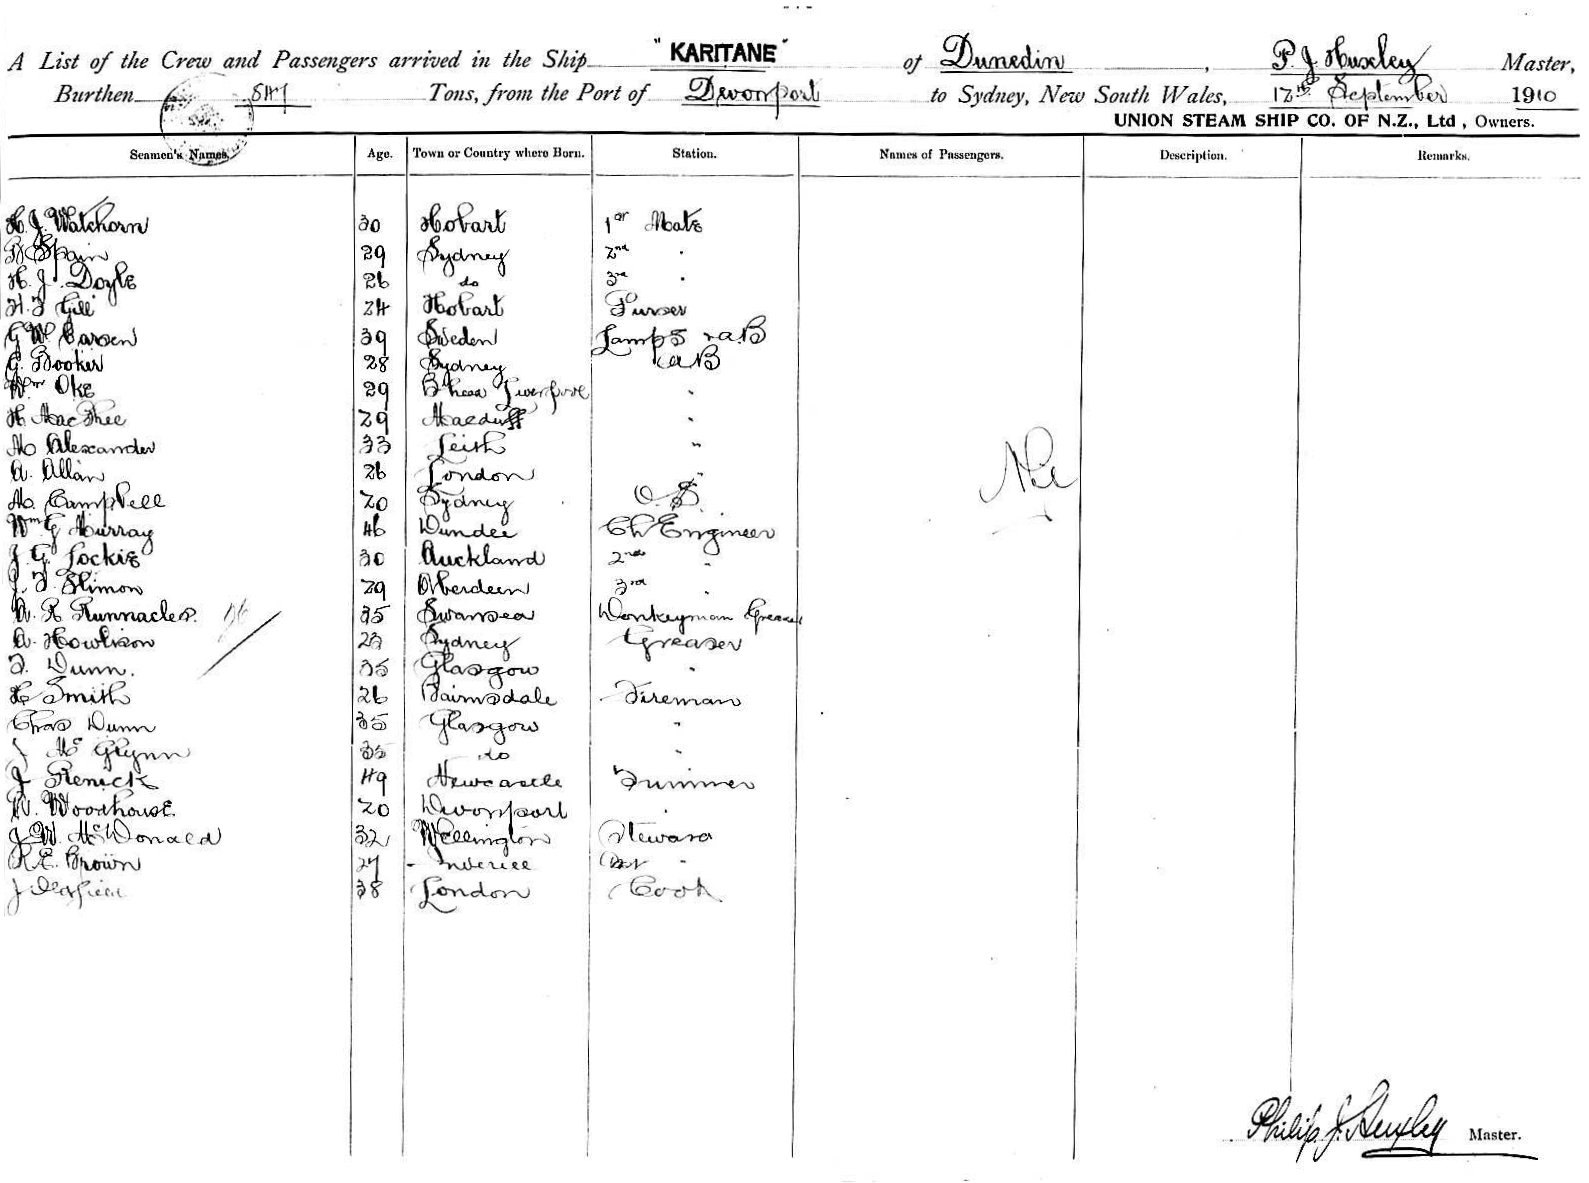 A List of the Crew and Passengers arrived in the Ship "KARITANE" of Dunedin, P. J. Huxley Master,
Burthen Tons, from the Port of Devonport to Sydney, New South Wales, 12th September 1910
UNION STEAM SHIP CO. OF N.Z., Ltd, Owners.
Seamen's Names. Age. Town or Country where Born. Station. Names of Passengers. Description. Remarks.
H. J. Watchorn 30 Hobart 1st Mate
Spain 29 Sydney 2nd "
H. J. Doyle 26 do 3rd "
H. F Gill 24 Hobart Purser
G W Carsen 39 Sweden Lamps & AB
G. Booker 28 Sydney AB
Wm Oke 29 B'head Liverpool "
H MacPhee 29 Macduff "
M Alexander 33 Leith "
A. Allan 26 London "
M. Campbell 20 Sydney O.S.
Wm G Murray 46 Dundee Ch Engineer
J. G. Lockie 30 Auckland 2nd "
J. F. Slimon 29 Aberdeen 3rd "
A. R Runnacles. 35 Swansea Donkeyman Greaser
A. Howlison 23 Sydney Greaser
F. Dunn. 35 Glasgow "
H Smith 26 Bairnsdale Fireman
Chas Dunn 35 Glasgow "
J McGlynn 35 do "
J Renick 49 Newcastle Trimmer
W. Woodhouse 20 Devonport "
J. W. McDonald 32 Wellington Steward
R. E. Brown 27 "
J 38 London Cook
Nil
Philip J. Huxley Master.